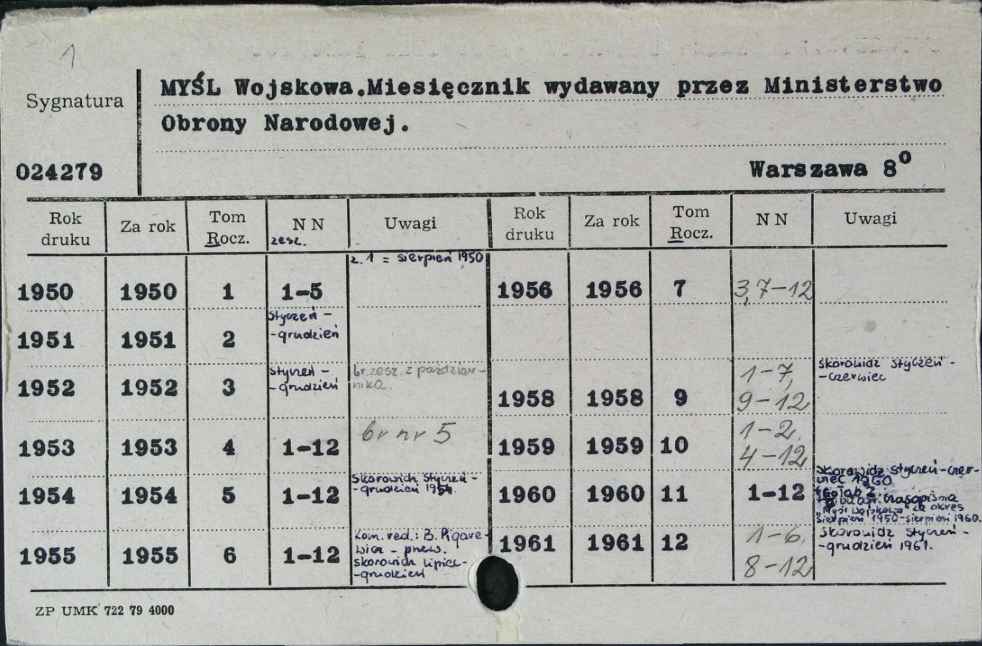 1
Sygnatura
024279
MYŚL Wojskowa.Miesięcznik wydawany przez Ministerstwo
Obrony Narodowej.
Warszawa 8⁰
Rok druku Za rok Tom Rocz. N N zesz. Uwagi Rok druku Za rok Tom Rocz. N N Uwagi
z. 1 = sierpień 1950
1950 1950 1 1-5
1956 1956 7 3,7-12
1951 1951 2 styczeń -
-grudzień
1952 1952 3 styczeń -
-grudzień
br. zesz. z paździer-
nika
1958 1958 9 1-7,
9-12
skorowidz styczeń -
-czerwiec
1953 1953 4 1-12 br nr 5
1959 1959 10 1-2,
4-12
1954 1954 5 1-12 Skorowidz styczeń-
-grudzień 1954.
1960 1960 11 1-12 skorowidz styczeń-czer-
wiec 1960
czasopisma
"Myśl Wojskowa" za okres
sierpień 1950-sierpień 1960.
1955 1955 6 1-12 Kom. red.: B.
skorowidz lipiec-
-grudzień
1961 1961 12 1-6,
8-12
skorowidz styczeń-
-grudzień 1961.
ZP UMK 722 79 4000